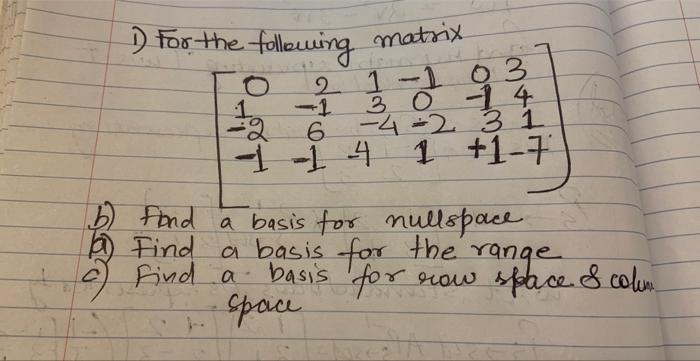 1) For the following matrix
0 2 1 -1 0 3
1 -1 3 0 -1 4
-2 6 -4 -2 3 1
-1 -1 -4 1 +1 -7
b) Find a basis for nullspace
a) Find a basis for the range
c) Find a basis for row space & colum
space